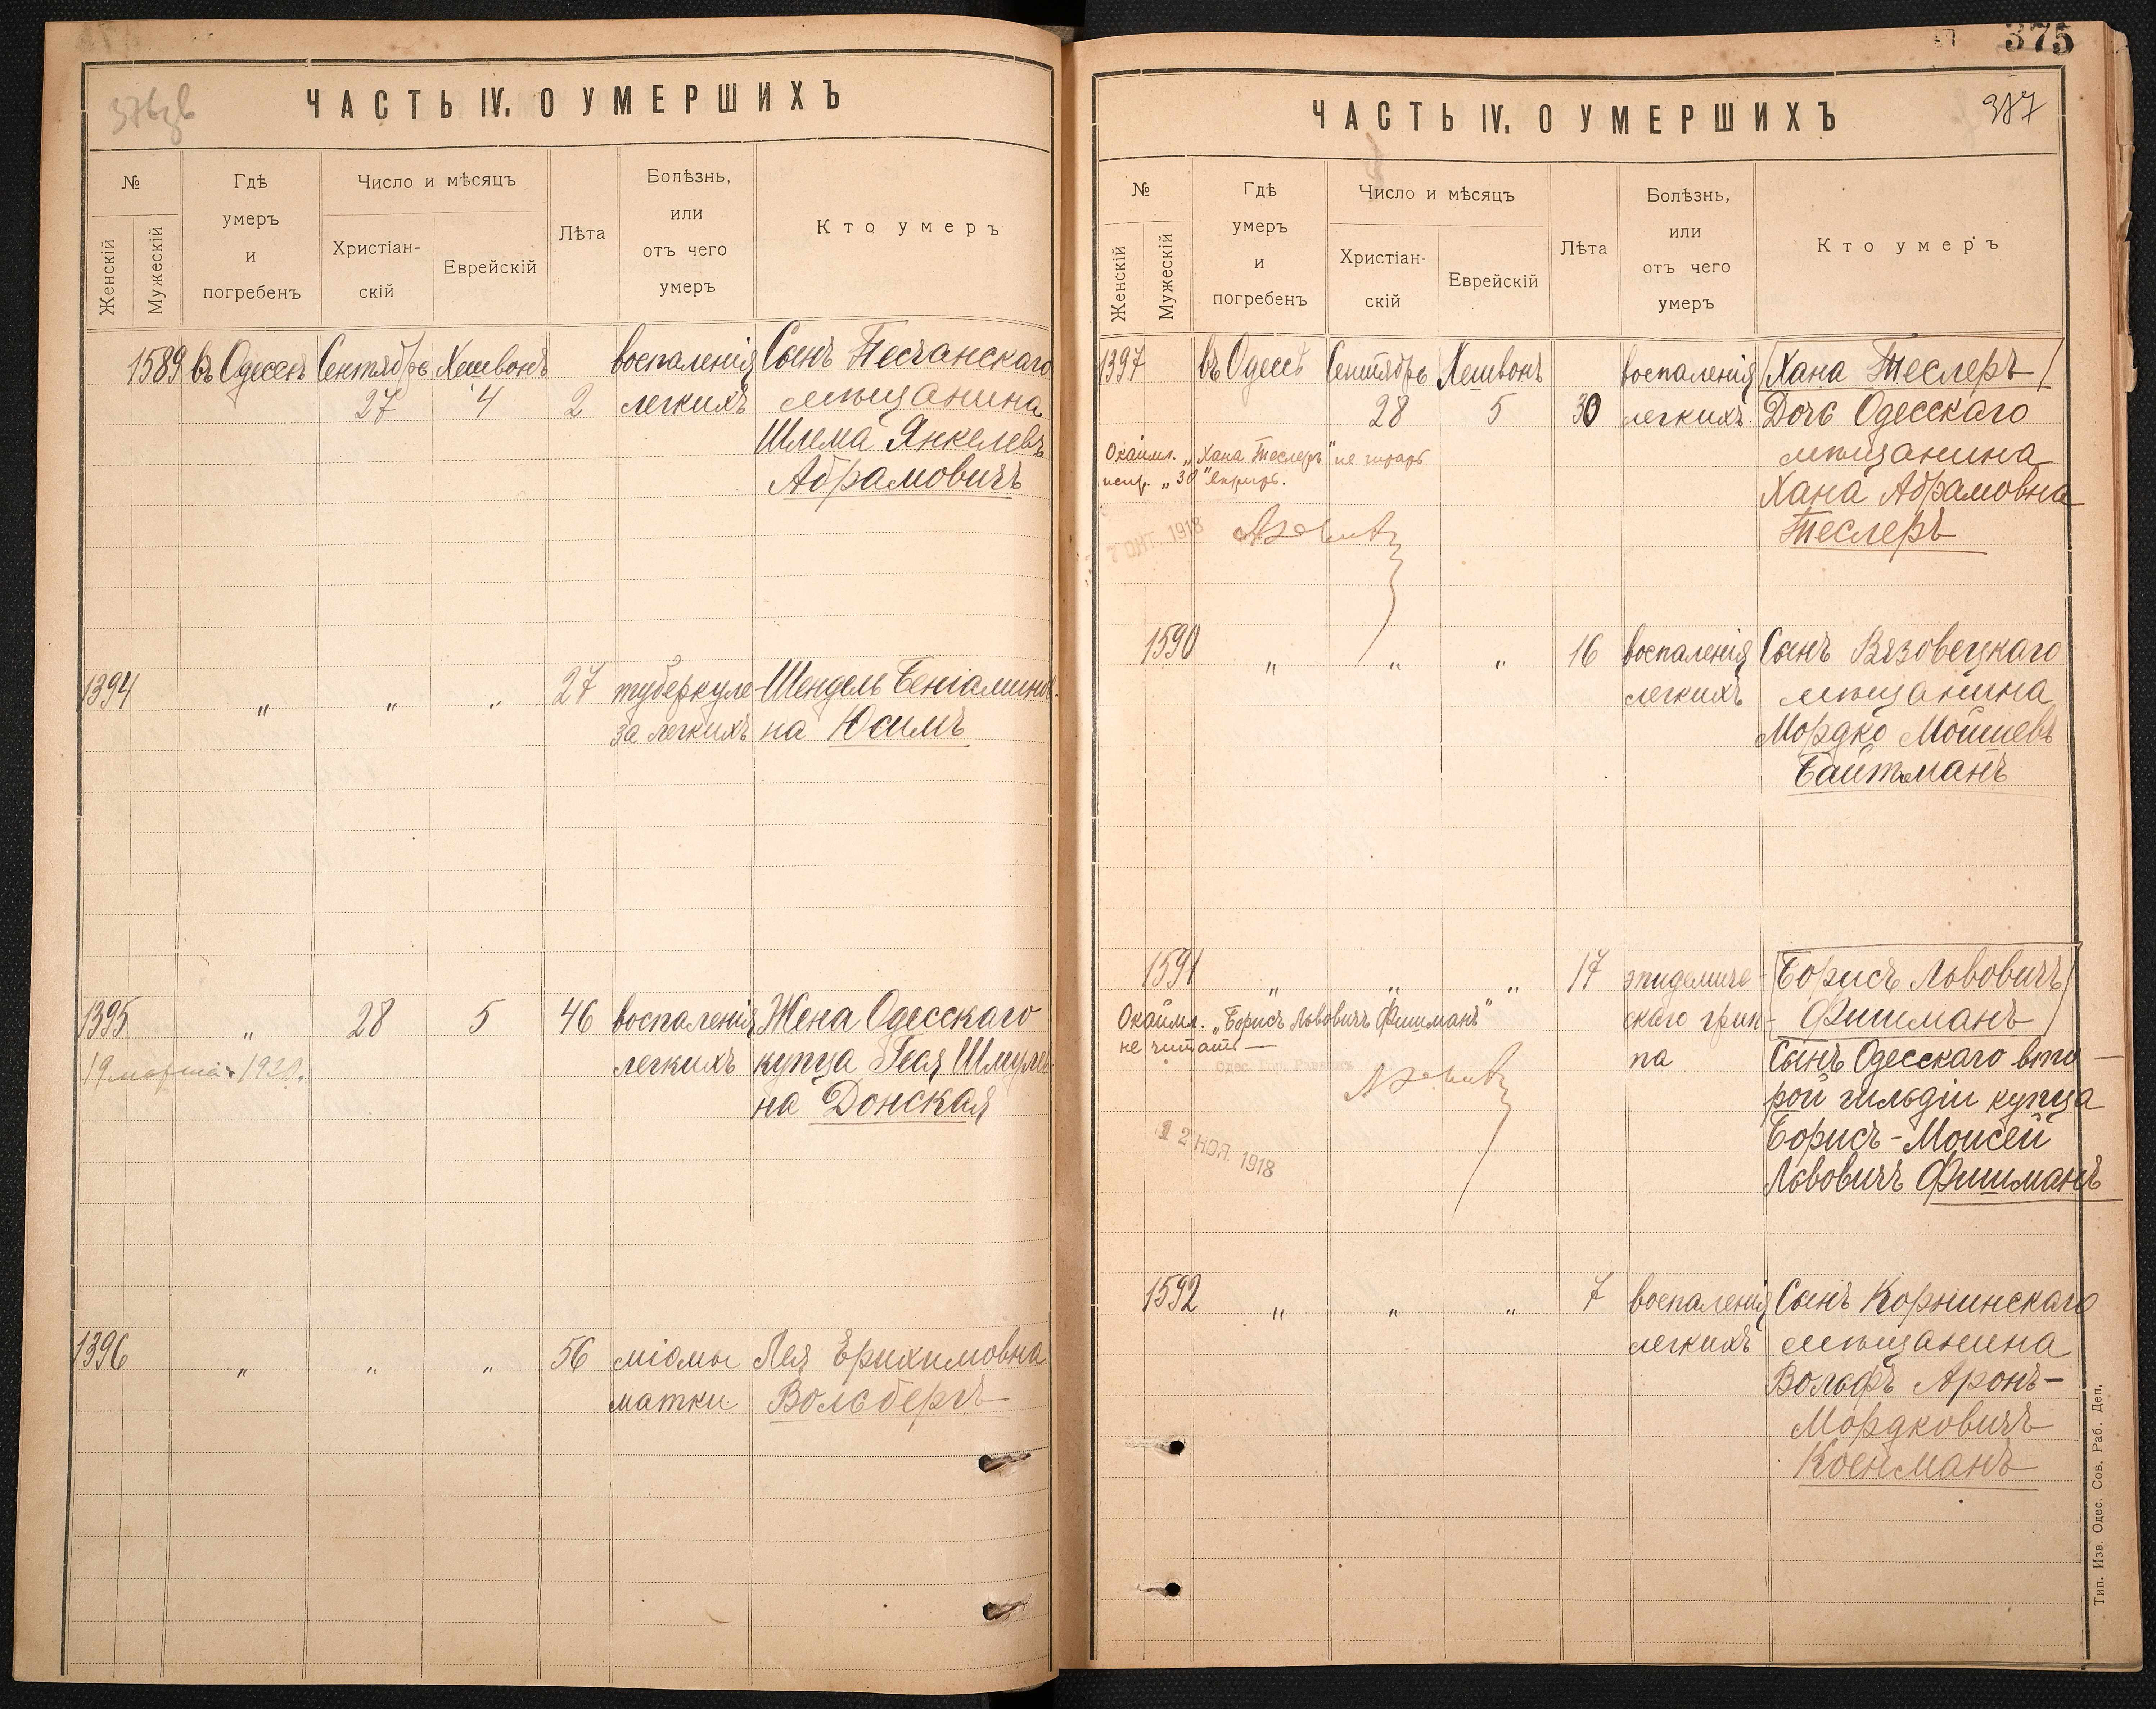 ЧАСТЬ IV. О УМЕРШИХЪ
№
Женскій
Мужескій
Гдѣ
умеръ
и
погребенъ
Число и мѣсяцъ
Христіан-
скій
Еврейскій
Лѣта
Болѣзнь,
или
отъ чего
умеръ
Кто умеръ
1589 въ Одессѣ Сентябрь Хешвонъ воспаленія Сынъ Песчанскаго
27 4 2 легкихъ мѣщанина
Шлема Янкелевъ
Абрамовичъ
1394 " " " 27 туберкуле- Шендель Беніаминов-
за легкихъ на Юсимъ
1395 " 28 5 46 воспаленія Жена Одесскаго
19 марта 1920. легкихъ купца Гея Шмулев-
на Донская
1396 " " " 56 міомы Лея Ерихимовна
матки Вольбергъ
375
387
ЧАСТЬ IV. О УМЕРШИХЪ
№
Женскій
Мужескій
Гдѣ
умеръ
и
погребенъ
Число и мѣсяцъ
Христіан-
скій
Еврейскій
Лѣта
Болѣзнь,
или
отъ чего
умеръ
Кто умеръ
1397 въ Одессѣ Сентябрь Хешвонъ воспаленія Хана Теслеръ
28 5 30 легкихъ Дочь Одесскаго
Окаймл. „Хана Теслеръ" не мѣщанина
испр. „30" Хана Абрамовна
7 ОКТ. 1918 Теслеръ
1590 " " " 16 воспаленія Сынъ Вязовецкаго
легкихъ мѣщанина
Мордко Мошиевъ
Байтманъ
1591 " " " 17 эпидемиче- Борисъ Львовичъ
Окаймл. „Борисъ Львовичъ Фишманъ" скаго грип- Фишманъ
не читать — па Сынъ Одесскаго вто-
Одес. Гор. Раввинъ
рой гильдіи купца
12 НОЯ. 1918 Борисъ-Моисей
Львовичъ Фишманъ
1592 " " " 7 воспаленія Сынъ Корнинскаго
легкихъ мѣщанина
Вольфъ Аронъ-
Мордковичъ
Коенманъ
Тип. Изв. Одес. Сов. Раб. Деп.